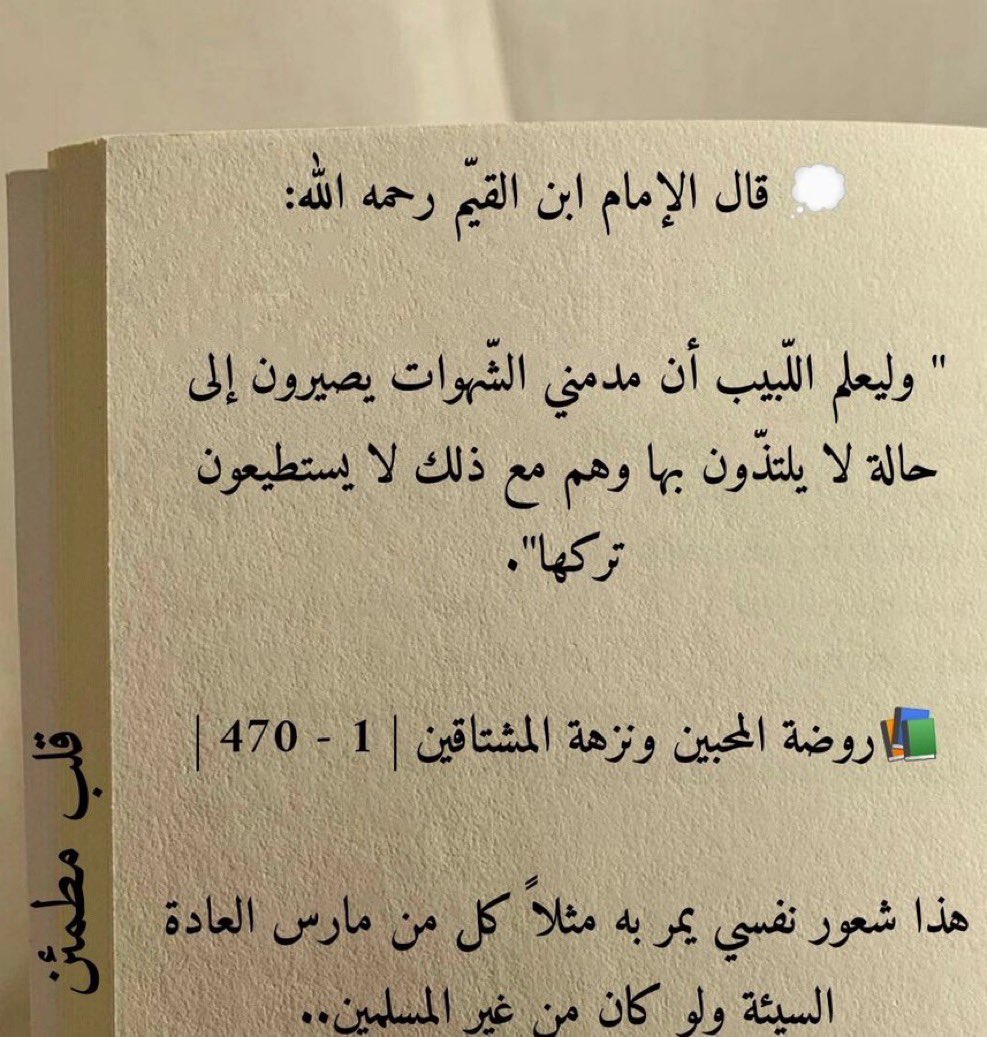 💭 قال الإمام ابن القيّم رحمه الله:
" وليعلم اللّبيب أن مدمني الشّهوات يصيرون إلى
حالة لا يلتذّون بها وهم مع ذلك لا يستطيعون
تركها".
📚روضة المحبين ونزهة المشتاقين | 1 - 470 |
هذا شعور نفسي يمر به مثلاً كل من مارس العادة
السيئة ولو كان من غير المسلمين..
قلب مطمئن